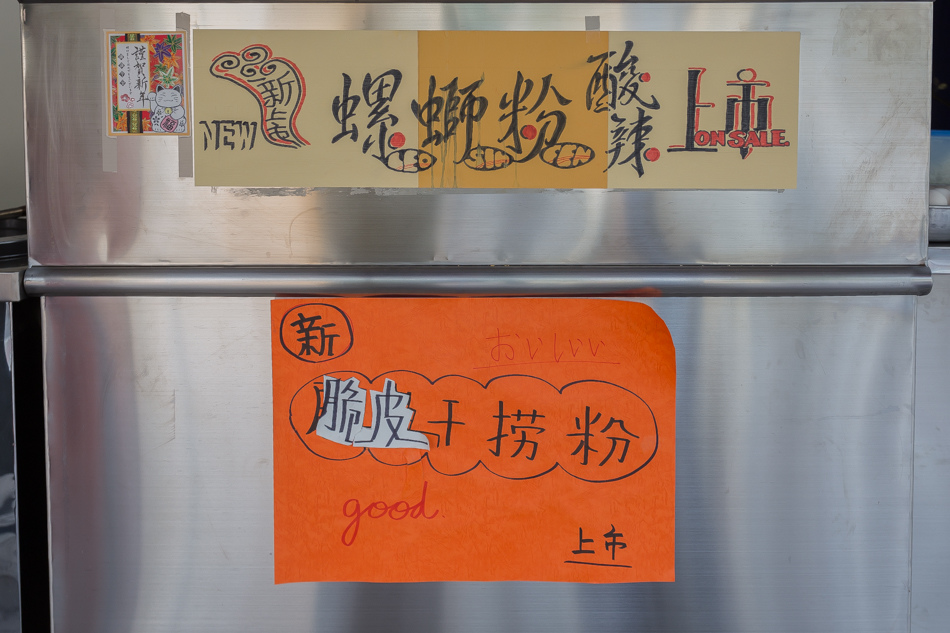 謹賀新年
NEW
新上市
螺蛳粉
LEO SIM FEN
酸辣
上市
ON SALE.
新
おいしいい
脆皮干捞粉
good.
上市